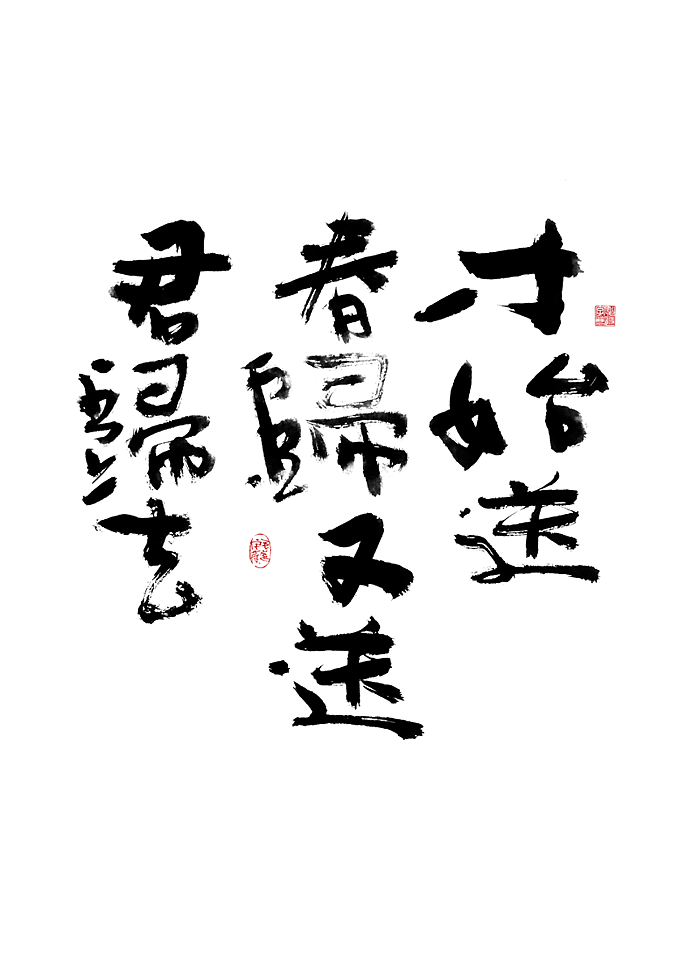 才始送
春歸又送
君歸去